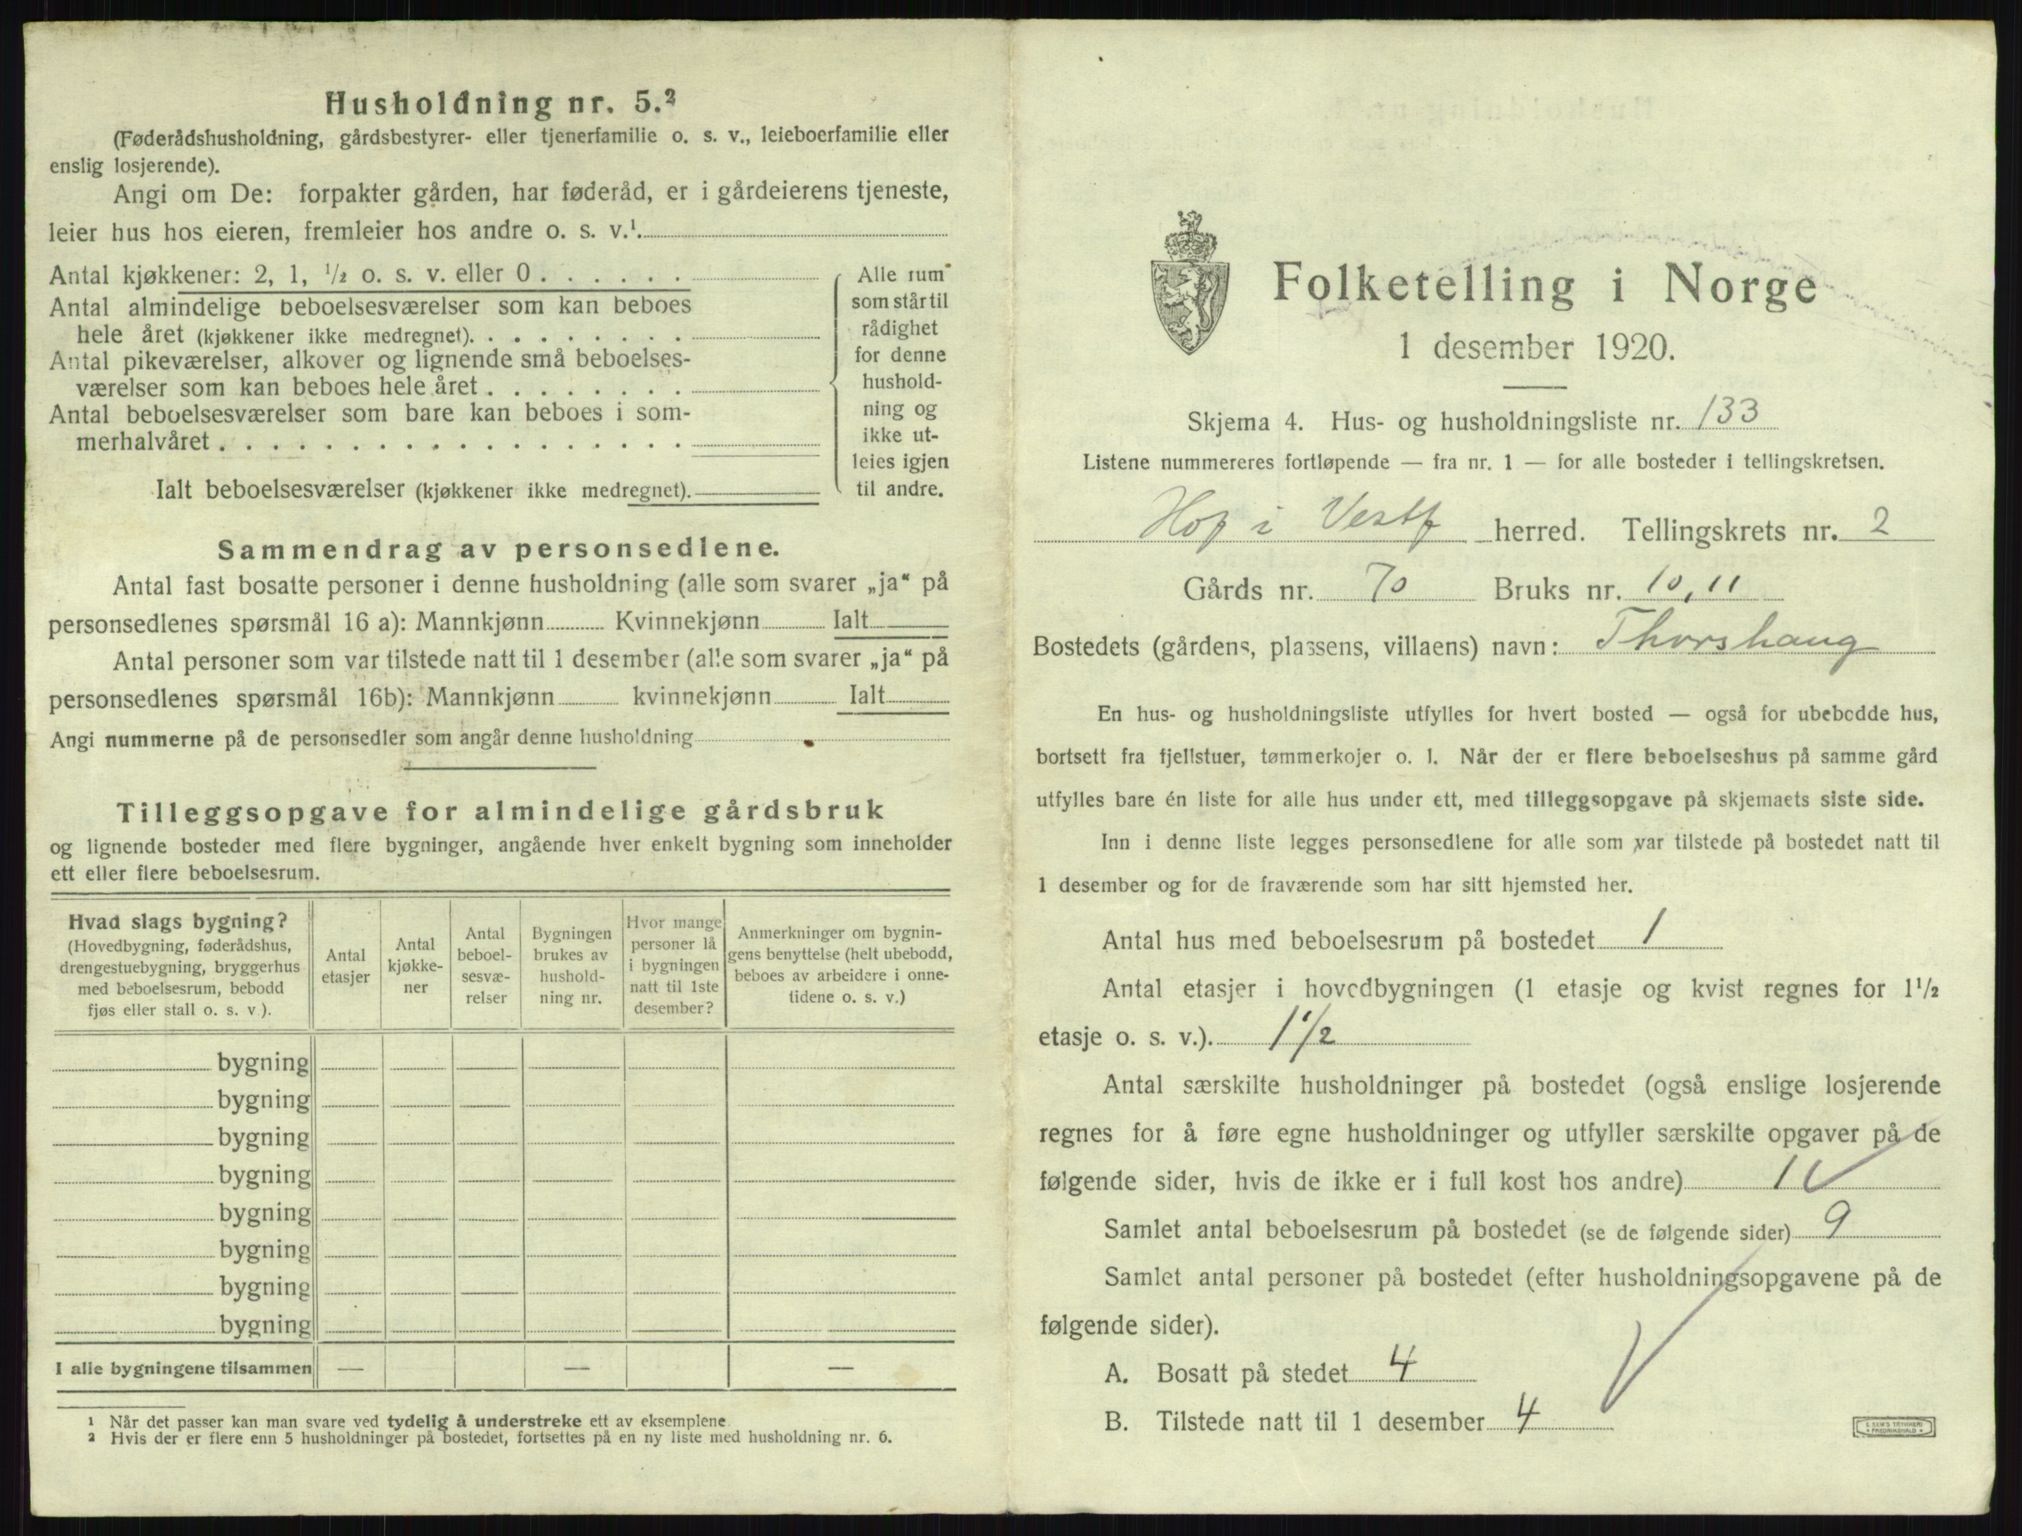 Husholdning nr. 5.²
(Føderådshusholdning, gårdsbestyrer- eller tjenerfamilie o. s. v., leieboerfamilie eller
enslig losjerende).
Angi om De: forpakter gården, har føderåd, er i gårdeierens tjeneste,
leier hus hos eieren, fremleier hos andre o. s. v.¹.
Antal kjøkkener: 2, 1, ½ o. s. v. eller 0 . . . . . .
Antal almindelige beboelsesværelser som kan beboes
hele året (kjøkkener ikke medregnet). . . . . . . . .
Antal pikeværelser, alkover og lignende små beboelses-
værelser som kan beboes hele året . . . . . . . .
Antal beboelsesværelser som bare kan beboes i som-
merhalvåret . . . . . . . . . . . . . . . . . .
Ialt beboelsesværelser (kjøkkener ikke medregnet).
Alle rum
som står til
rådighet
for denne
hushold-
ning og
ikke ut-
leies igjen
til andre.
Sammendrag av personsedlene.
Antal fast bosatte personer i denne husholdning (alle som svarer „ja“ på
personsedlenes spørsmål 16 a): Mannkjønn Kvinnekjønn Ialt
Antal personer som var tilstede natt til 1 desember (alle som svarer „ja“ på
personsedlenes spørsmål 16b): Mannkjønn kvinnekjønn Ialt
Angi nummerne på de personsedler som angår denne husholdning
Tilleggsopgave for almindelige gårdsbruk
og lignende bosteder med flere bygninger, angående hver enkelt bygning som inneholder
ett eller flere beboelsesrum.
Hvad slags bygning?
(Hovedbygning, føderådshus,
drengestuebygning, bryggerhus
med beboelsesrum, bebodd
fjøs eller stall o. s. v ).
Antal
etasjer
Antal
kjøkke-
ner
Antal
beboel-
sesvæ-
relser
Bygningen
brukes av
hushold-
ning nr.
Hvor mange
personer lå
i bygningen
natt til 1ste
desember?
Anmerkninger om bygnin-
gens benyttelse (helt ubebodd,
beboes av arbeidere i onne-
tidene o. s. v.)
bygning
bygning
bygning
bygning
bygning
bygning
bygning
bygning
I alle bygningene tilsammen — — —
¹ Når det passer kan man svare ved tydelig å understreke ett av eksemplene
² Hvis der er flere enn 5 husholdninger på bostedet, fortsettes på en ny liste med husholdning nr. 6.
Folketelling i Norge
1 desember 1920.
Skjema 4. Hus- og husholdningsliste nr. 133
Listene nummereres fortløpende — fra nr. 1 — for alle bosteder i tellingskretsen.
Hof i Vestf herred. Tellingskrets nr. 2
Gårds nr. 70 Bruks nr. 10, 11
Bostedets (gårdens, plassens, villaens) navn: Thorshaug
En hus- og husholdningsliste utfylles for hvert bosted — også for ubebodde hus,
bortsett fra fjellstuer, tømmerkojer o. l. Når der er flere beboelseshus på samme gård
utfylles bare én liste for alle hus under ett, med tilleggsopgave på skjemaets siste side.
Inn i denne liste legges personsedlene for alle som var tilstede på bostedet natt til
1 desember og for de fraværende som har sitt hjemsted her.
Antal hus med beboelsesrum på bostedet 1
Antal etasjer i hovedbygningen (1 etasje og kvist regnes for 1½
etasje o. s. v.). 1½
Antal særskilte husholdninger på bostedet (også enslige losjerende
regnes for å føre egne husholdninger og utfyller særskilte opgaver på de
følgende sider, hvis de ikke er i full kost hos andre) 1
Samlet antal beboelsesrum på bostedet (se de følgende sider) 9
Samlet antal personer på bostedet (efter husholdningsopgavene på de
følgende sider).
A. Bosatt på stedet 4
B. Tilstede natt til 1 desember 4
E. SEM'S TRYKKERI
FREDRIKSHALD